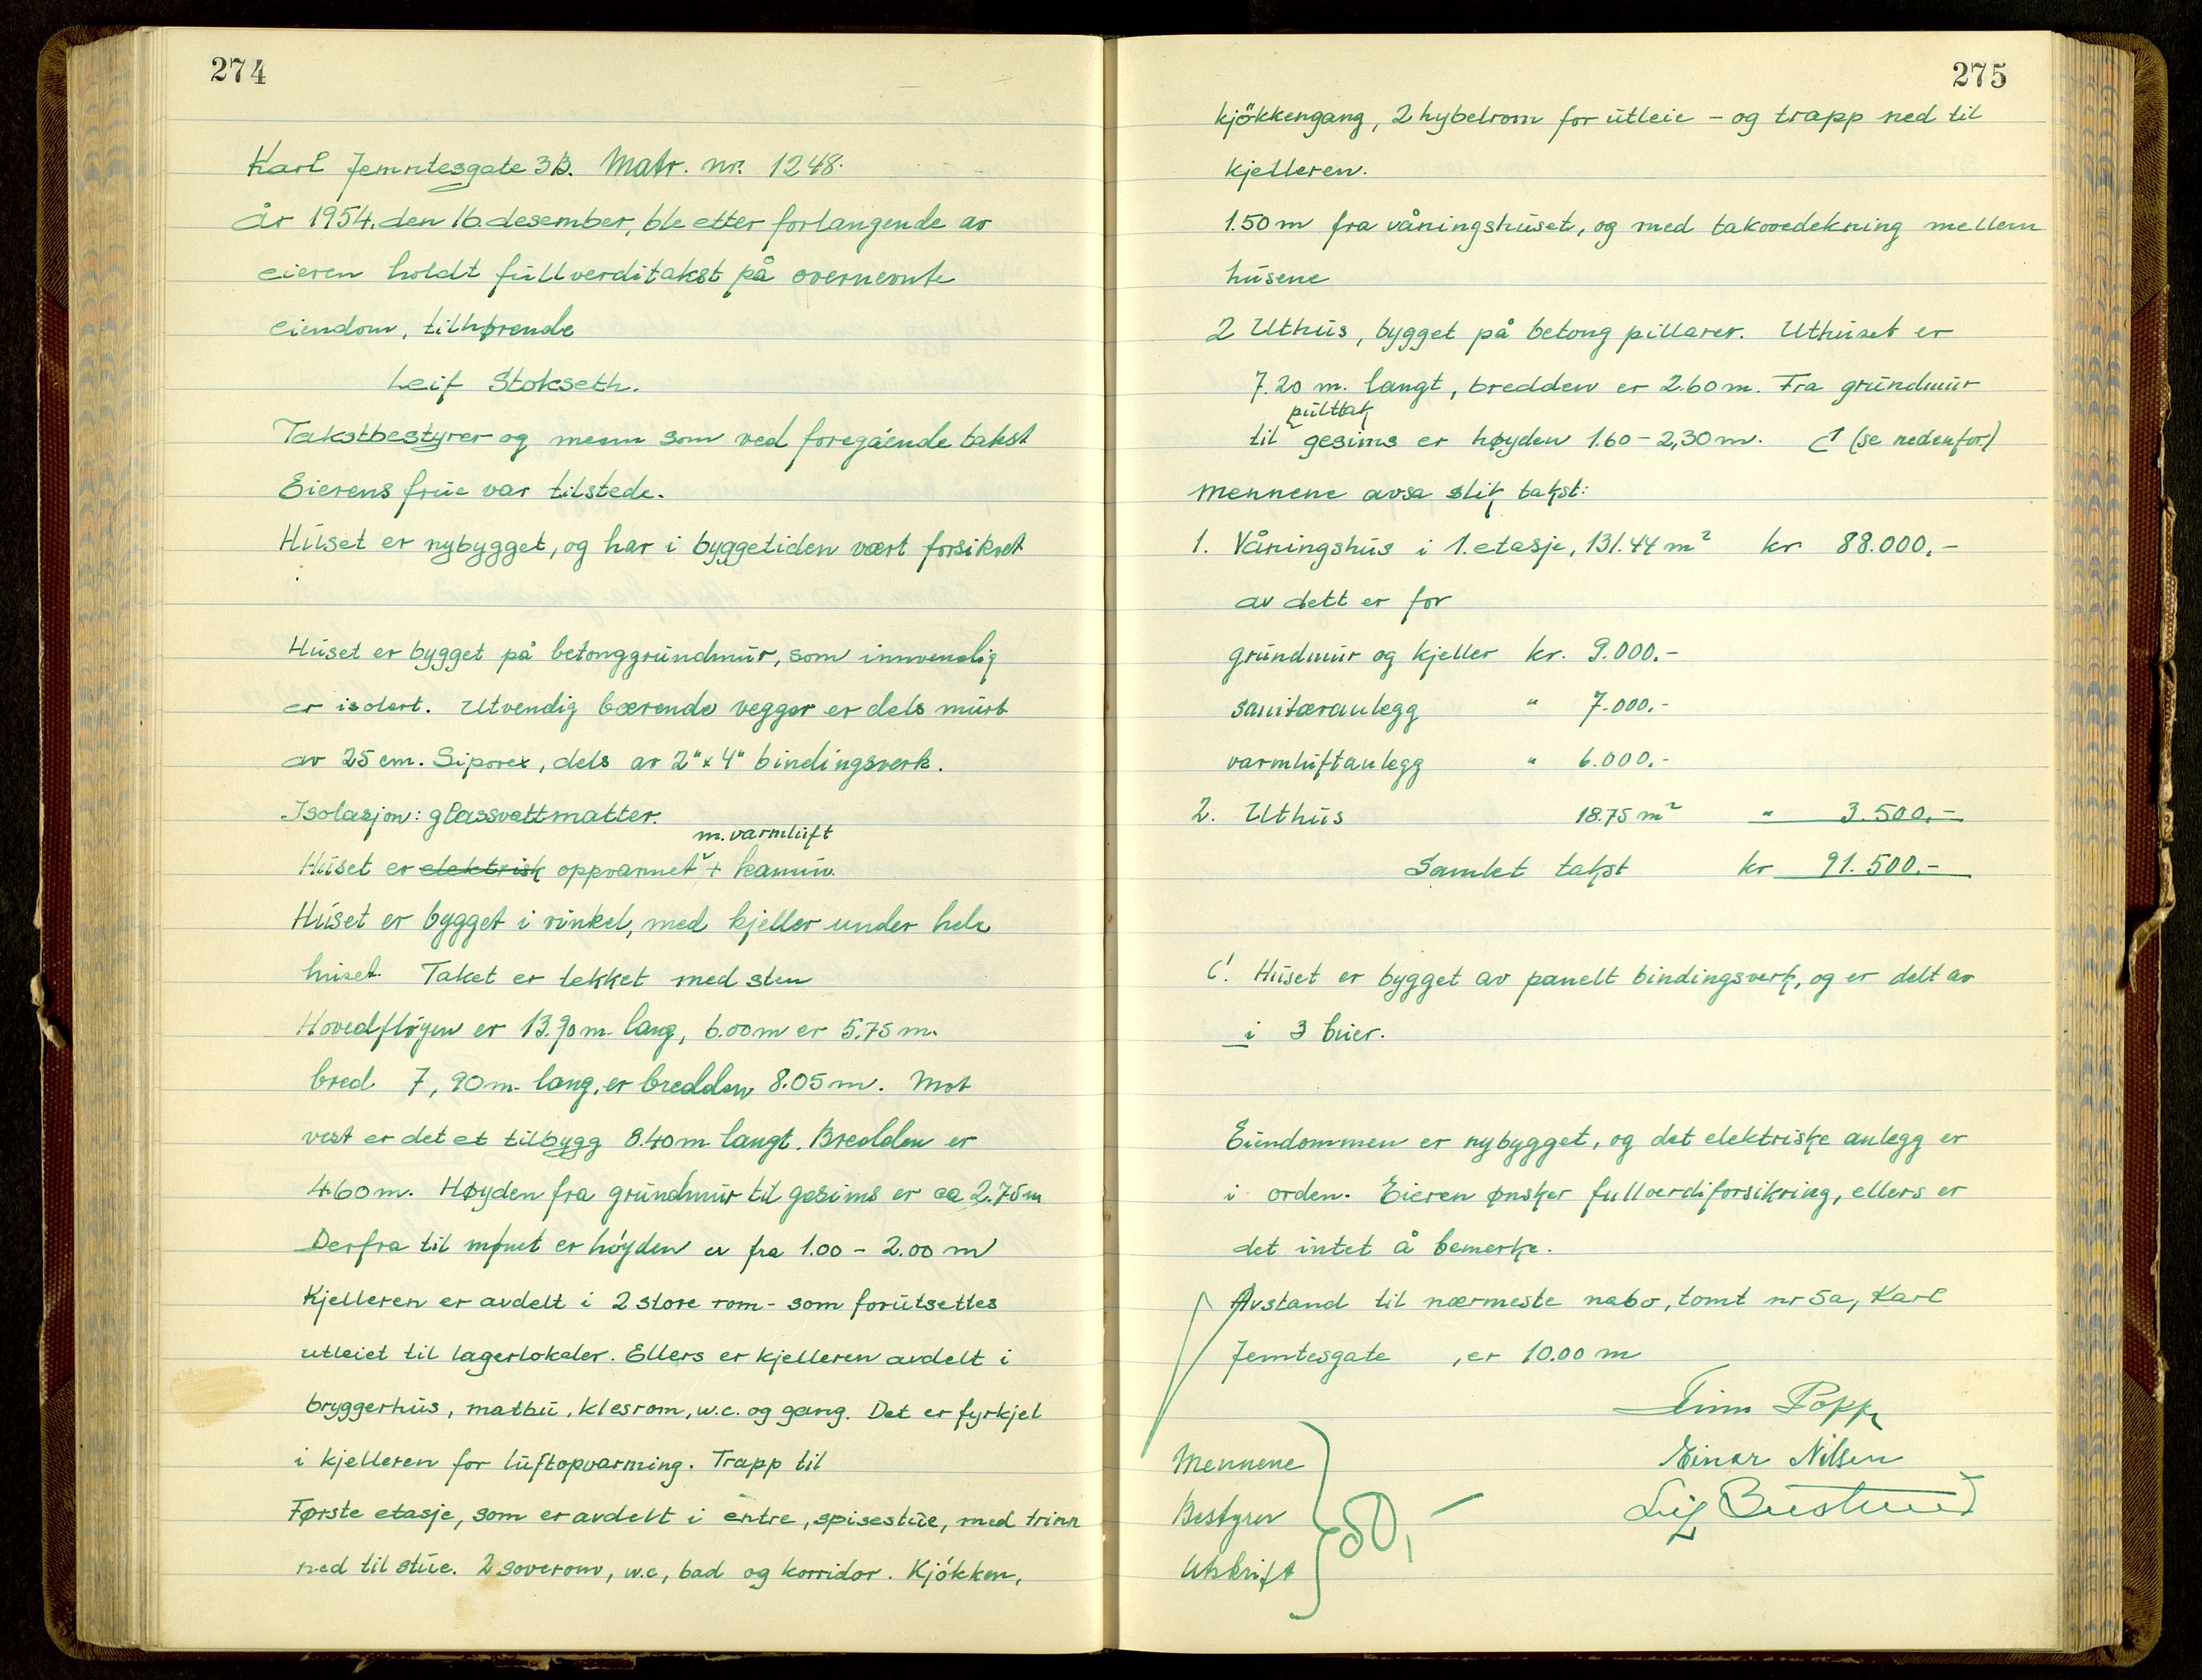 274
Karl Jemntesgate 3B. Matr. nr. 1248.
År 1954. den 16. desember, ble etter forlangende av
eieren holdt fullverditakst på overnevnte
eiendom, tilhørende
Leif Stokseth.
Takstbestyrer og menn som ved foregående takst
Eierens frue var tilstede.
Huset er nybygget, og har i byggetiden vært forsikret
Huset er bygget på betonggrundmur, som innvendig
er isolert. Utvendig bærende vegger er dels murt
av 25 cm. Siporex, dels av 2" x 4" bindingsverk.
Isolasjon: glassvattmatter.
m. varmluft
Huset er elektrisk oppvarmet + kamin.
Huset er bygget i vinkel, med kjeller under hele
huset. Taket er tekket med sten
Hovedfløyen er 13.90 m. lang, 6.00 m er 5.75 m.
bred 7,90 m. lang, er bredden 8.05 m. Mot
vest er det et tilbygg 8.40 m langt. Bredden er
4.60 m. Høyden fra grundmur til gesims er ca 2.75 m
Derfra til mønet er høyden er fra 1.00 - 2.00 m
Kjelleren er avdelt i 2 store rom - som forutsettes
utleiet til lagerlokaler. Ellers er kjelleren avdelt i
bryggerhus, matbu, klesrom, w.c. og gang. Det er fyrkjel
i kjelleren for luftopvarming. Trapp til
Første etasje, som er avdelt i entre, spisestue, med trinn
ned til stue. 2 soverom, w.c, bad og korridor. Kjøkken,
275
kjøkkengang, 2 hybelrom for utleie - og trapp ned til
kjelleren.
1.50 m fra våningshuset, og med takovedekning mellem
husene
2 Uthus, bygget på betong pillarer. Uthuset er
7.20 m. langt, bredden er 2.60 m. Fra grundmur
pulttak
til gesims er høyden 1.60 - 2,30 m. (se nedenfor)
Mennene avsa slik takst:
1. Våningshus i 1. etasje, 131.44 m² kr 88.000,-
av dett er for
grundmur og kjeller kr. 9.000.-
sanitæranlegg " 7.000.-
varmluftanlegg " 6.000.-
2. Uthus 18.75 m² " 3.500,-
Samlet takst kr 91.500.-
Huset er bygget av panelt bindingsverk, og er delt av
i 3 buer.
Eiendommen er nybygget, og det elektriske anlegg er
i orden. Eieren ønsker fullverdiforsikring, ellers er
det intet å bemerke.
Avstand til nærmeste nabo, tomt nr 5a, Karl
Jemtesgate , er 10.00 m
Finn Popp
Mennene
Einar Nilsen
Bestyrer
50,-
Utskrift